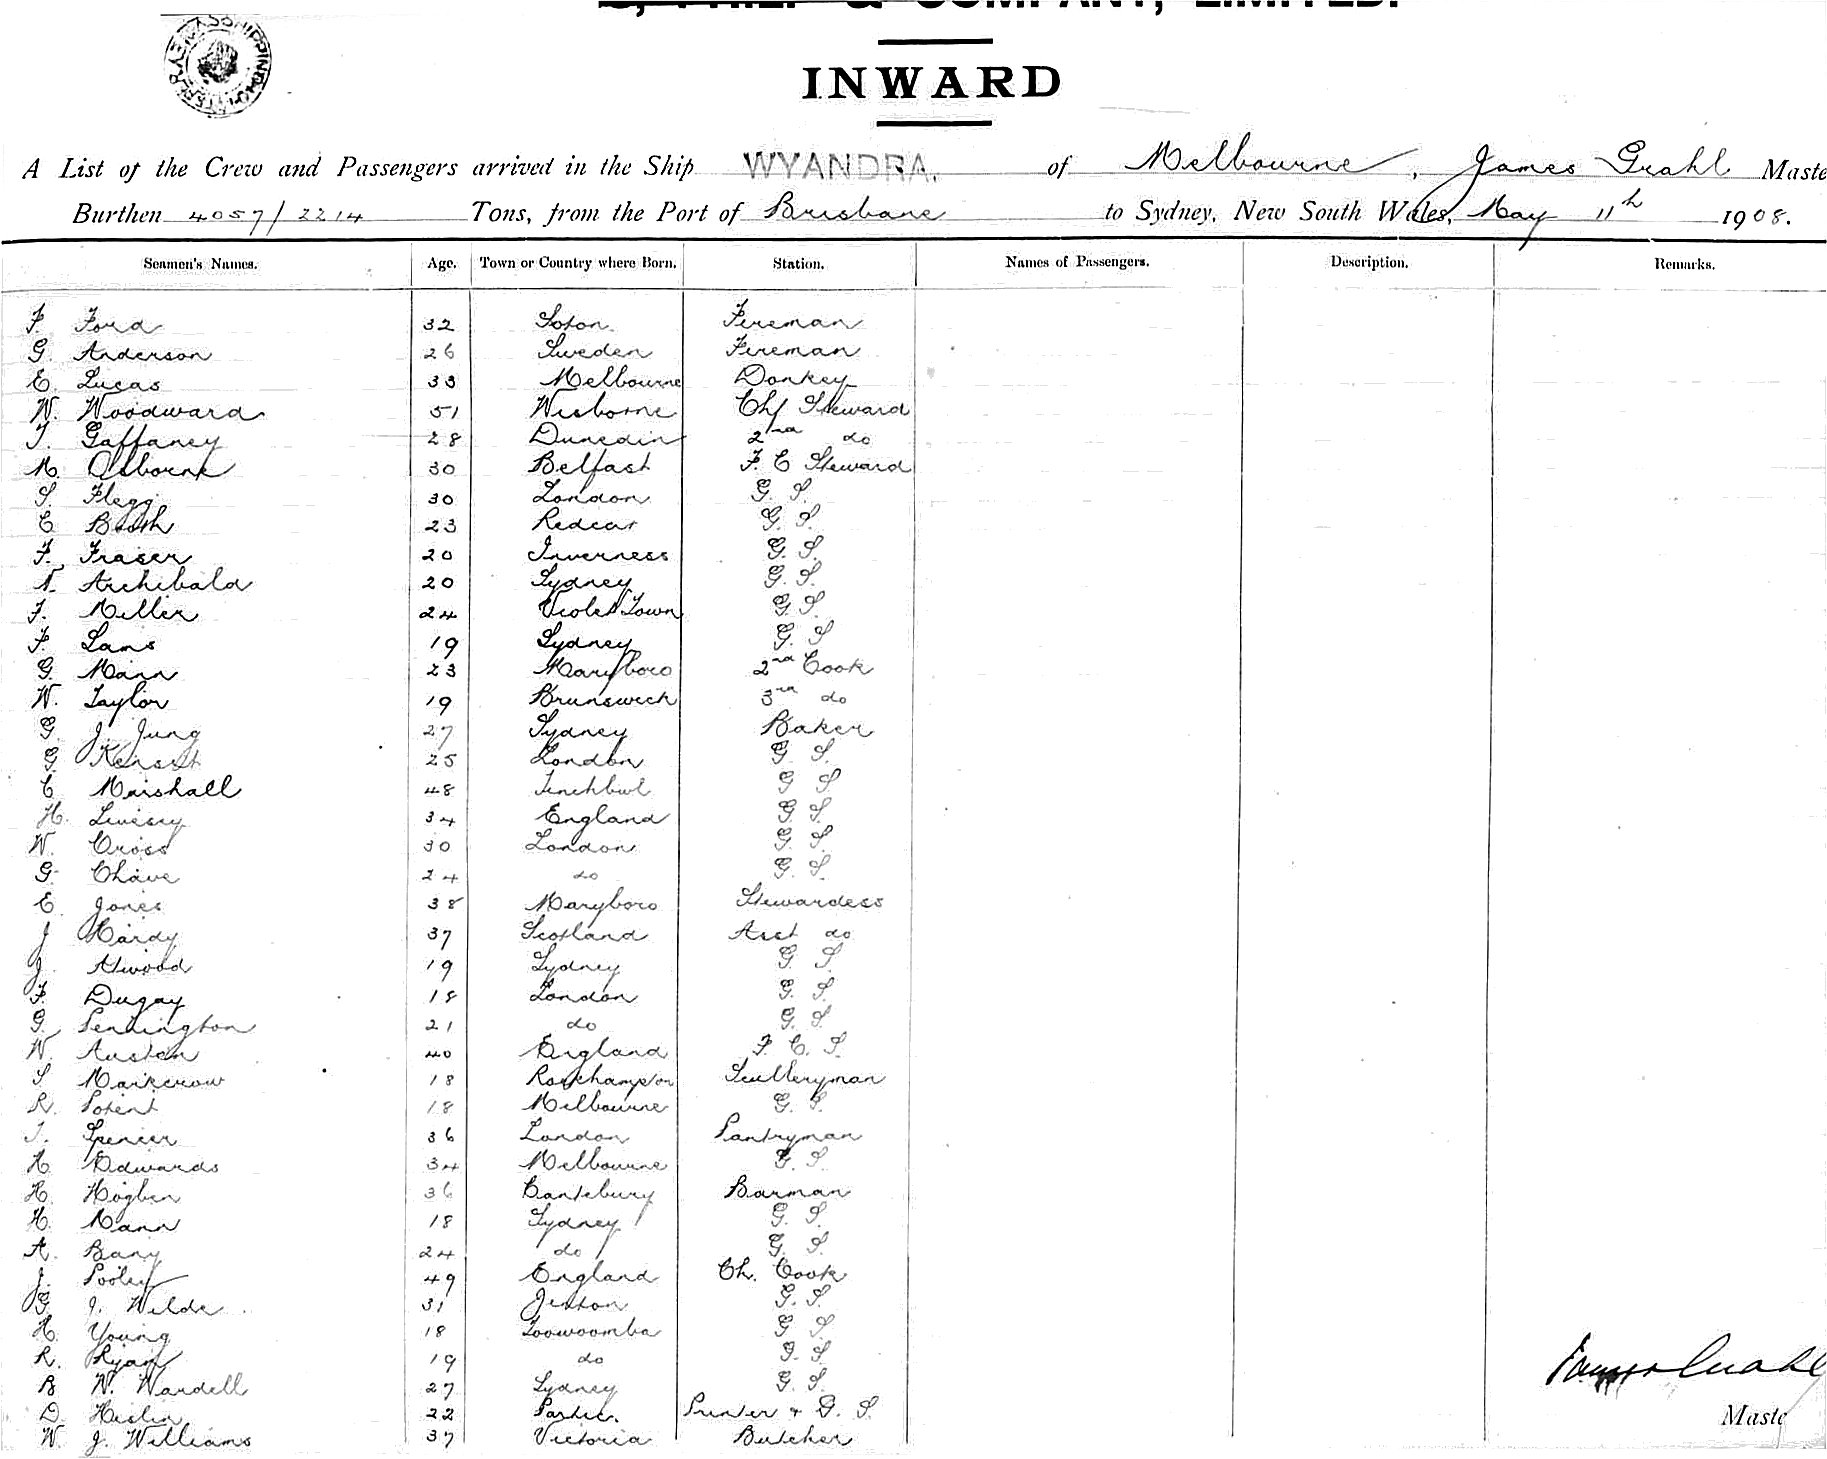 & COMPANY, LIMITED.
INWARD
A List of the Crew and Passengers arrived in the Ship WYANDRA. of Melbourne, James Grahl Maste
Burthen 4057/2214 Tons, from the Port of Brisbane to Sydney, New South Wales, May 11th 1908.
Seamen's Names. Age. Town or Country where Born. Station. Names of Passengers. Description. Remarks.
F. Ford 32 Soton. Fireman
G. Anderson 26 Sweden Fireman
E. Lucas 33 Melbourne Donkey
W. Woodward 51 Wisborne Chf Steward
T. Gaffaney 28 Dunedin 2nd do
M. Osborne 30 Belfast F. C Steward
S. Flegg 30 London G. S.
C Booth 23 Redcar G. S.
F. Fraser 20 Inverness G. S.
N. Archibald 20 Sydney G. S.
F. Miller 24 Violet Town G. S.
F. Lams 19 Sydney G. S
G. Mann 23 Maryboro 2nd Cook
W. Taylor 19 Brunswick 3rd do
G. J. Jung 27 Sydney Baker
G. 25 London G S.
C Marshall 48 G S
H. Livesey 34 England G S.
W. Cross 30 London G. S.
G. Chave 24 do G. S.
E. Jones 38 Maryboro Stewardess
J Hardy 37 Scotland Asst do
J. Atwood 19 Sydney G. S.
F. Dugay 18 London G. S.
G. Pennington 21 do G. S.
W. Austen 40 England F. C. S.
S Maircrow 18 Roehampton Sculleryman
R. Potent 18 Melbourne G. S.
T. Spencer 36 London Pantryman
H. Edwards 34 Melbourne G. S.
H. Hogben 36 Cantebury Barman
H. Mann 18 Sydney G. S.
A. Bany 24 do G. S.
J. Pooley 49 England Ch. Cook
G J. Wilde 31 G. S.
H. Young 18 Toowoomba G S
R. Ryan 19 do G. S
B W. Wardell 27 Sydney G. S.
D. Heslin 22 Printer + G. S.
W. J. Williams 37 Victoria Butcher
James Grahl
Maste